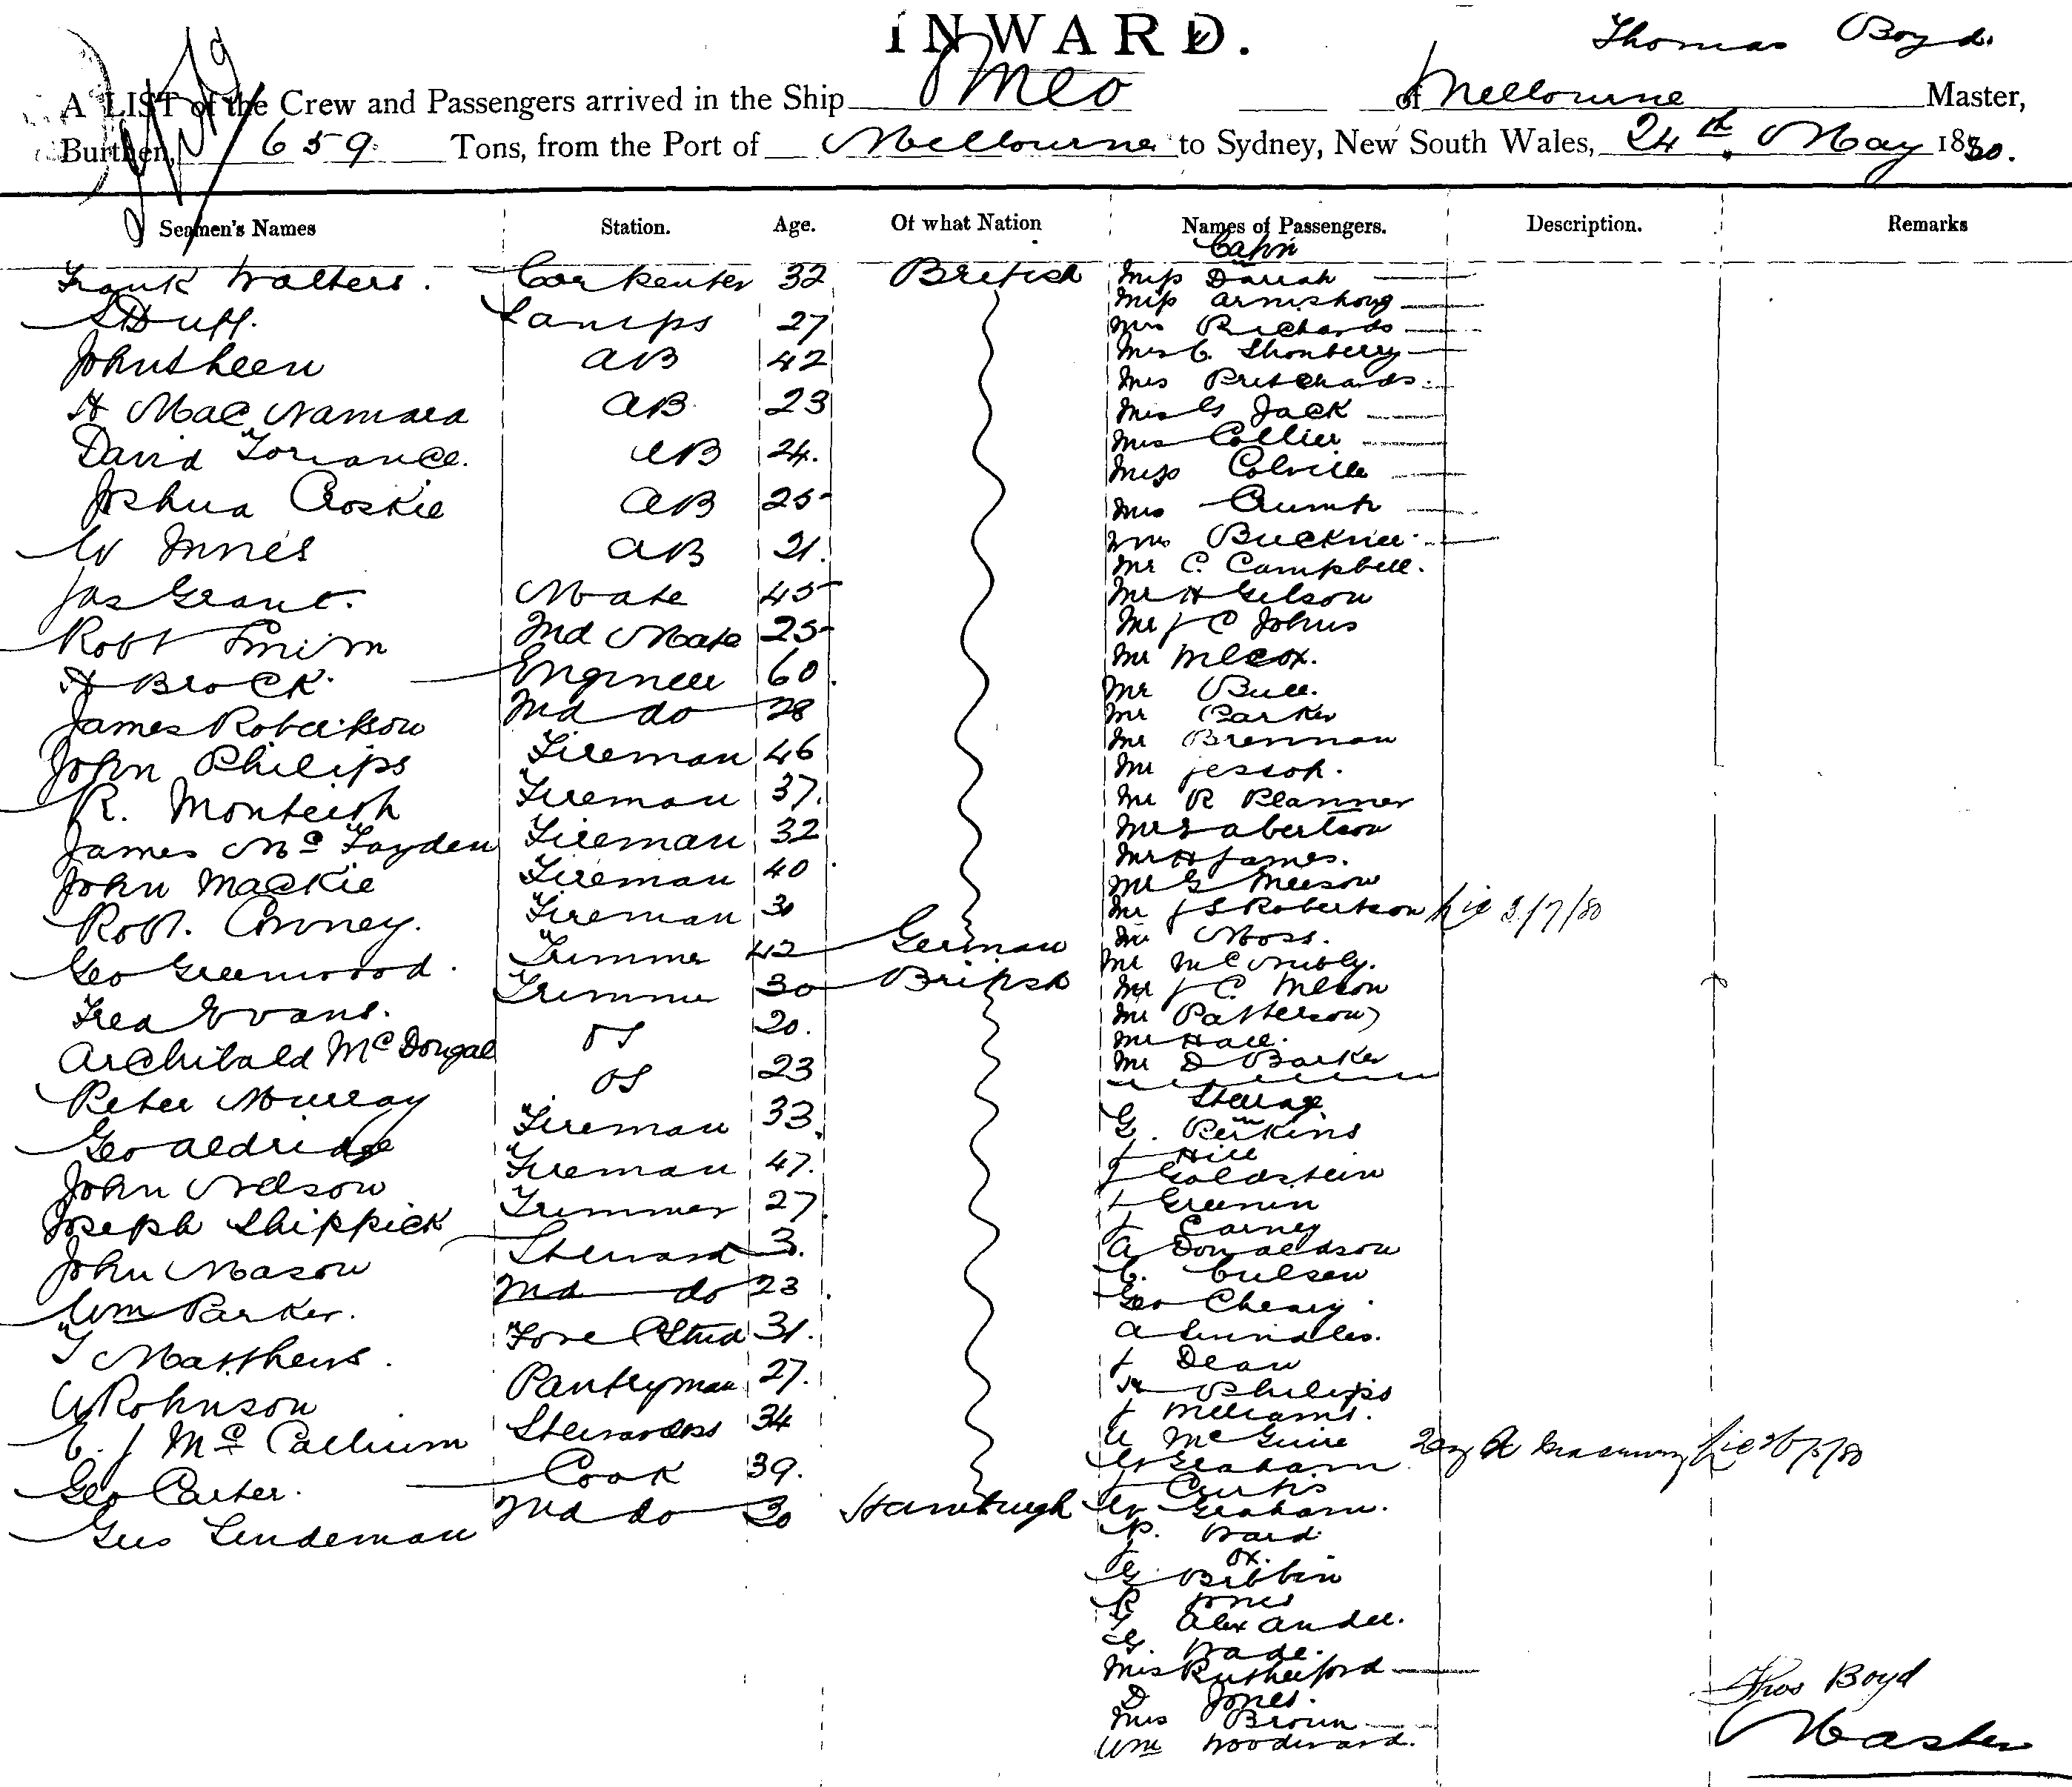 INWARD.
Thomas Boyd.
A LIST of the Crew and Passengers arrived in the Ship of Melbourne Master,
Burthen, 659 Tons, from the Port of Melbourne to Sydney, New South Wales, 24th May 1880.
Seamen's Names Station. Age. Of what Nation Names of Passengers. Description. Remarks
Cabin
Frank Walters. Carpenter 32 British Miss Darrah
Miss Armstrong
S Duff. Lamps 27 Mrs Richards
John Sheen AB 42 Mrs C. Shonberry
Mrs Pritchards
H MacNamara AB 23 Mrs G Jack
David Torrance. AB 24. Mrs Collier
Miss Colville
Joshua Croskie AB 25 Mrs Crump
W Innes AB 21. Mrs Bucknell
Mr C. Campbell.
Jas Grant. Mate 45 Mr H Gilson
Robt Smith 2nd Mate 25 Mr J C Johns
H Brock. Engineer 60. Mr Wilcox.
James Robertson 2nd do 28 Mr Bull.
Mr Parker
John Philips Fireman 46 Mr Brennan
Mr Jessop.
R. Monteith Fireman 37. Mr R Planner
James McFayden Fireman 32 Mr Labertson
Mr H James.
John Mackie Fireman 40 Mr G Meeson
Robt. Conney. Fireman 30 Mr J S Robertson Lic 3/7/80
Geo Greenwood. Trimmer 42 German Mr Moss.
Mr McNubly.
Fred Evans. Trimmer 30 British Mr J C. Wilson
Mr Patterson
Archibald McDougal OS 20. Mr Hall.
Mr D Barker
Peter Murray OS 23 Steerage
Geo Aldridge Fireman 33. G. Perkins
J Hill
John Nelson Fireman 47. J Goldstein
Joseph Shippick Trimmer 27. J Greenin
J Carney
John Mason Steward 3. A Donaldson
Wm Parker. 2nd do 23 C. Culsen
Geo Cheary.
T Matthews. Fore Stud 31. A
J Dean
W Robinson Pantryman 27. H Philips
J Williams.
E. J McCallum Stewardess 34 A McGuire
W Graham Lic 26/5/80
Geo Carter. Cook 39. J Curtis
Gus Lindeman 2nd do 30 Hamburgh W Graham.
P. Ward.
J Ox.
G. Bibbin
R Jones
G Alexander.
G. Wade.
Mrs Rutherford
D Jones.
Mrs Brown
Wm Woodward.
Thos Boyd
Master